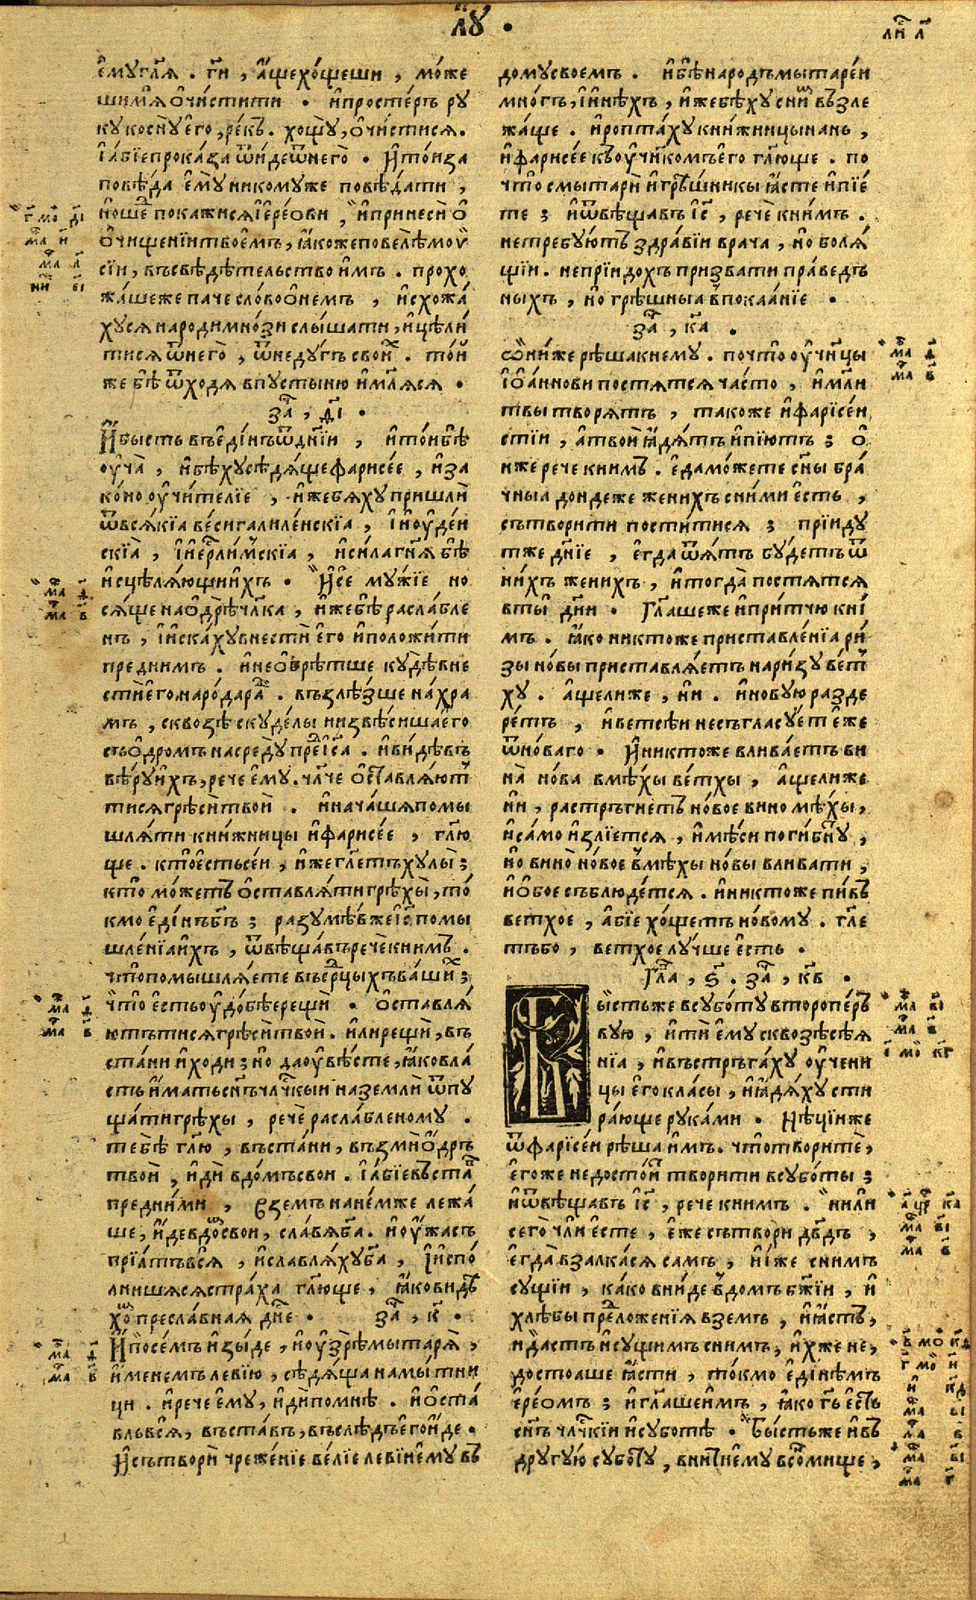 лꙋ҃ •
лиⷭ҇ л҃
емꙋ гл҃ѧ . ги҃ , а҆ще хо́щеши , мо́же
ши мѧ̀ ѡ҆чи́стити • и҆ просте́ръ рꙋ
кꙋ коснꙋ̀ е҆го̀ , ре́къ . хощꙋ̀ , ѡ҆чи́стисѧ .
і҆ а҆́бїе прока́за ѿи́де ѿ него̀ • и҆ то́и за
повѣ́да е҆мꙋ̀ никомꙋ́же повѣ́дати ,
но ше́д покажисѧ і҆ере́ови , и҆ принесѝ ѡ҆
ѡ҆чище́нїи твое́мъ , ꙗ҆́коже повелѣ̀ мо
ѵ҆сїи , въ свѣдѣ́тельство и҆́мъ . прохо
жа́шеже па́че сло́во о҆ не́мъ , и҆ схожа́
хꙋсѧ наро́ди мно́зи слы́шати , и҆ цѣли́
тисѧ ѿ него̀ , ѿ недꙋ́гъ свои́х . то́и
же бѣ̀ ѿходѧ̀ в пꙋсты́ню и҆ мл҃ѧсѧ •
за҃ , д҃і •
И҆ бы́сть въ е҆ди́нъ ѿ дн҃їи , и҆ то́и бѣ̀
ѹ҆чѧ̀ , и҆ бѣ́хꙋ сѣдѧ́ще фарисе́е , и҆ за
ко́но ѹ҆чи́телїе , и҆́же бѧ́хꙋ пришли̂
ѿ всѧ́кїа ве́си галиле́искїа , і҆ і҆ѹде́и
скїа , і҆ і҆ерⷭ҇ли́мскїа , и҆ си́ла гн҃ѧ бѣ̀
и҆сцѣлѧ́ющи и҆́хъ • И҆ сѐ мꙋ́жїе но
сѧ́ще на о҆дрѣ̀ чл҃ка , и҆́же бѣ̀ расла́бле
нъ , і҆ и҆ска́хꙋ внести̂ е҆го̀ и҆ положи́ти
пред ни́мъ . и҆ не ѡ҆брѣ́тше кꙋдѣ̀ вне
сти̂ е҆го̀ наро́да ра́ди . възлѣ́зше на хра
мъ , сквозѣ̀ скꙋде́лы низвѣ́сиша е҆го̀
съ о҆дро́мъ на средꙋ̀ пред і҆с҃а . и҆ ви́дѣвъ
вѣ́рꙋ и҆́хъ , рече̂ е҆мꙋ̀ . чл҃че ѡ҆ставлѧ́ют
тисѧ грѣсѝ твои̂ . и҆ нача́ша помы
шлѧ́ти кни́жницы и҆ фарисе́е , гл҃ю
ще . кто̀ е҆сть се́и , и҆́же гл҃етъ хꙋлы̂ ;
кто̀ мо́жетъ ѡ҆ставлѧ́ти грѣхѝ , то́
кмо е҆ди́нъ бг҃ъ ; разꙋмѣ́в же і҆с҃ помы
шле́нїа и҆́хъ , ѿвѣща́въ рече̂ к ни́мъ .
что̀ помышлѧ́ете въ срⷣцыхъ ва́ших ;
что̀ е҆сть ѹ҆до́бѣе рещѝ • ѡ҆ставлѧ́
ютътисѧ грѣсѝ твои̂ . и҆ли рещѝ , въ
ста́ни и҆ ходи̂ ; но да ѹ҆вѣ́сте , ꙗ҆́ко вла
сть и҆́мать сн҃ъ чл҃чкыи на земли̂ ѿпꙋ
ща́ти грѣхы , рече̂ расла́бленомꙋ .
тебѣ̀ гл҃ю , въста́ни , възмѝ о҆́дръ
тво́и , и҆ дѝ в до́мъ сво́и . і҆ а҆́бїе въста́в
пред ни́ми , взе́мъ на не́мже лежа́
ше , и҆́де в до́м сво́и , сла́вѧ бг҃а . и҆ ѹ҆́жасъ
прїѧ́тъ всѧ̀ , и҆ славлѧ́хꙋ бг҃а , і҆ и҆спо́
лнишасѧ стра́ха гл҃юще , ꙗ҆́ко ви́дѣ
хо́м пресла́внаѧ дне҃с • за҃ , к҃ •
И҆ по се́мъ и҆зы́де , и҆ ѹ҆зрѣ̀ мытарѧ̀ ,
и҆́менемъ леві́ю , сѣдѧ́ща на мы́тни
ци . и҆ рече̂ е҆мꙋ̀ , и҆ди̂ по мнѣ̀ . и҆ ѡ҆ста́
вль всѧ̀ , въста́въ , въслѣ́дъ е҆го̀ и҆́де •
И҆ сътворѝ чреже́нїе ве́лїе леві́и е҆мꙋ̀ въ
домꙋ̀ свое́мъ . и҆ бѣ̀ наро́дъ мытаре́и
мно́гъ , і҆ и҆нѣ́хъ , и҆́же бѣ́хꙋ с ни́м възле
жа́ще . и҆ ропта́хꙋ кни́жницы на нь ,
и҆ фарисе́е къ ѹ҆чн҃ко́мъ е҆го̀ гл҃юще . по
что̀ с мытарѝ и҆ грѣ́шникы ꙗ҆́сте и҆ пїе́
те ; и҆ ѿвѣща́въ і҆с҃ , рече̂ к ни́мъ .
не тре́бꙋютъ здра́вїи врача̀ , но болѧ́
щїи . не прїидо́хъ призва́ти пра́ведъ
ныхъ , но грѣ́шныа в покаа́нїе •
за҃ , к҃а •
Ѡ҆ни́же рѣ́ша к немꙋ̀ . почто̀ ѹ҆чн҃цы
і҆о҆а́ннови постѧ́тсѧ ча́сто , и҆ мл҃и
твы творѧ́тъ , тако́же и҆ фарїсе́и
стїи , а҆ твои̂ ꙗ҆дѧ́тъ и҆ пїю́тъ ; ѡ҆́
ни́же рече̂ к ни́мъ . е҆да мо́жете сн҃ы бра́
чныа до́ндеже жени́хъ с ни́ми е҆́сть ,
сътвори́ти пости́тисѧ ; прїи́дꙋ
тже дн҃їе , е҆гда ѿѧ́тъ бꙋ́детъ ѿ
ни́хъ жени́хъ , и҆ тогда̀ постѧ́тсѧ
в ты̂и дн҃и • Гл҃аше же и҆ при́тчю к ни́
мъ . ꙗ҆́ко никто́же приставле́нїа ри́
зы но́вы приставлѧ́етъ на ри́зꙋ ве́т
хꙋ . а҆́щели же , ни̂ . и҆ но́вꙋю разде
ре́тъ , и҆ ве́тсѣи не съгласꙋ́ет е҆́же
ѿ но́ваго • И҆ никто́же влива́етъ ви
на̀ но́ва в мѣ́хы ве́тхы , а҆́щели же
ни̂ , растръгне́тъ но́вое вино̀ мѣ́хы ,
и҆ само̀ и҆злїе́тсѧ , и҆ мѣ́си поги́бнꙋт ,
но вино̀ но́вое в мѣ́хы но́вы влива́ти ,
и҆ ѻ҆бо́е съблюде́тсѧ . и҆ никто́же пи́въ
ве́тхое , а҆́бїе хо́щетъ но́вомꙋ . гл҃е
тъ бо , ве́тхое лꙋ́чше е҆́сть •
Гла҃ , ѕ҃ . за҃ , к҃в •
Бы́сть же в сꙋбо́тꙋ второпе́рв
вꙋю , и҆тѝ е҆мꙋ̀ сквозѣ̀ сѣ́ѧ
нїа , и҆ въстръга́хꙋ ѹ҆чени
цы е҆го̀ кла́сы , и҆ ꙗ҆дѧ́хꙋ сти
ра́юще рꙋка́ми • Нѣ́цїиже
ѿ фарїсе́и рѣ́ша и҆́мъ . что̀ творитѐ ,
е҆го́же не досто́ит твори́ти в сꙋбо́ты ;
и҆ ѿвѣща́въ і҆с҃ , рече̂ к ни́мъ . ни ли
сего̀ чли̂ е҆сте , е҆́же сътворѝ дв҃дъ ,
е҆гда̀ взалка́сѧ са́мъ , и҆ и҆́же с ни́мъ
сꙋ́щїи , ка́ко вни́де в до́мъ бж҃їи , и҆
хлѣ́бы пред ложе́нїа взе́мъ , и҆ ꙗ҆́стъ ,
и҆ да́стъ и҆ сꙋ́щимъ с ни́мъ , и҆́хже не ,
достоа́ше ꙗ҆́сти , то́кмо е҆ди́нѣмъ
і҆ере́омъ ; и҆ гл҃аше и҆́мъ , ꙗ҆́ко гь҃ е҆́сть
сн҃ъ чл҃чкїи и҆ сꙋбо́тѣ • Бы́сть же и҆ въ
дрꙋгꙋ́ю сꙋбо́тꙋ , вни́ти е҆мꙋ̀ в со́нмище ,